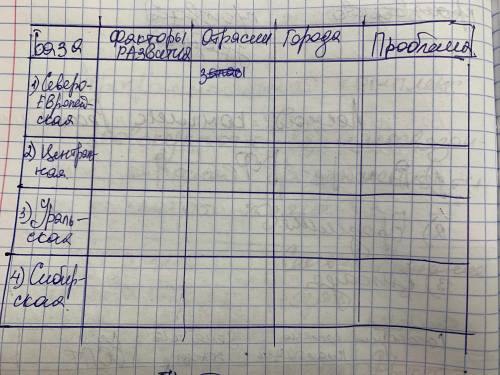 База Факторы развития Отрасли Города Проблемы
1) Северо-
Европей-
ская
2) Централь-
ная
3) Ураль-
ская
4) Сибир-
ская